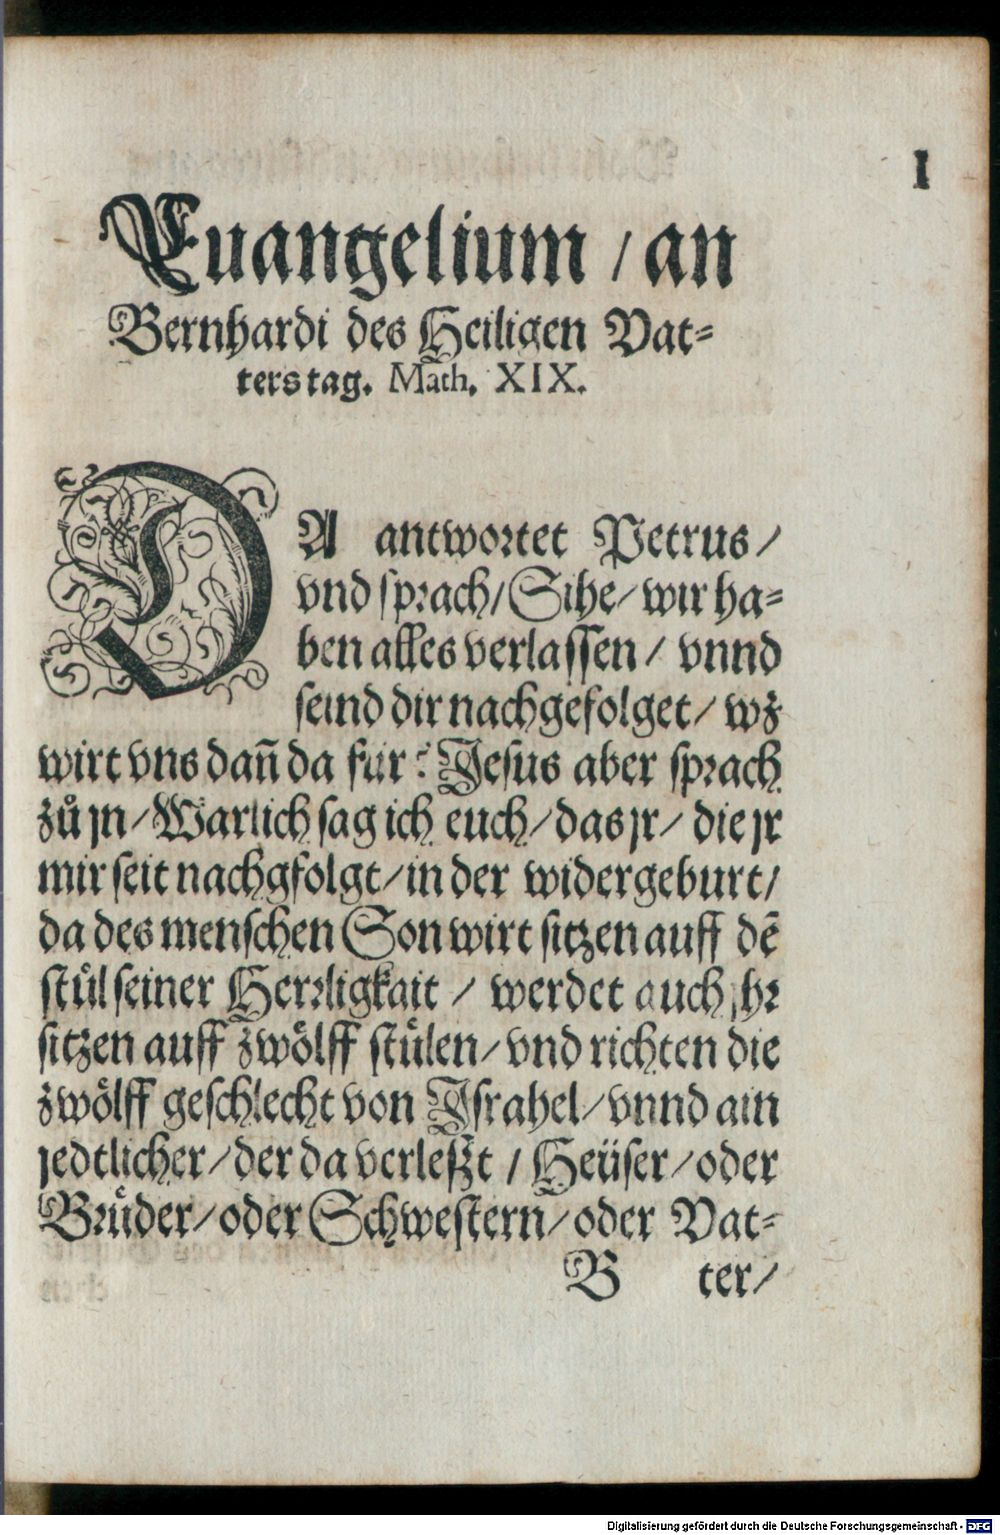 I
Euangelium / an
Bernhardi des Heiligen Vat-
ters tag. Math. XIX.
DA antwortet Petrus /
vnd sprach / Sihe / wir ha-
ben alles verlassen / vnnd
seind dir nachgefolget / wz
wirt vns dañ da für? Jesus aber sprach
zů jn / Warlich sag ich euch / das jr / die jr
mir seit nachgfolgt / in der widergeburt /
da des menschen Son wirt sitzen auff dẽ
stůl seiner Herrligkait / werdet auch jhr
sitzen auff zwölff stůlen / vnd richten die
zwölff geschlecht von Israhel / vnnd ain
jedtlicher / der da verleßt / Heüser / oder
Brüder / oder Schwestern / oder Vat-
B ter /
Digitalisierung gefördert durch die Deutsche Forschungsgemeinschaft - DFG